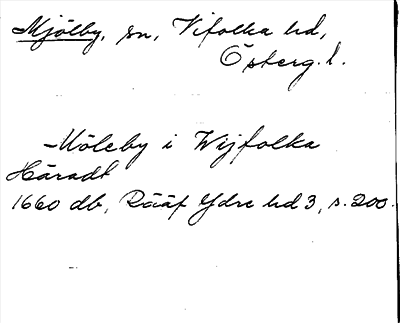 Mjölby, sn, Vifolka hd,
Österg. l.
-Möleby i Wijfolka
Häradt
1660 db, Rääf Ydre hd 3, s. 200.